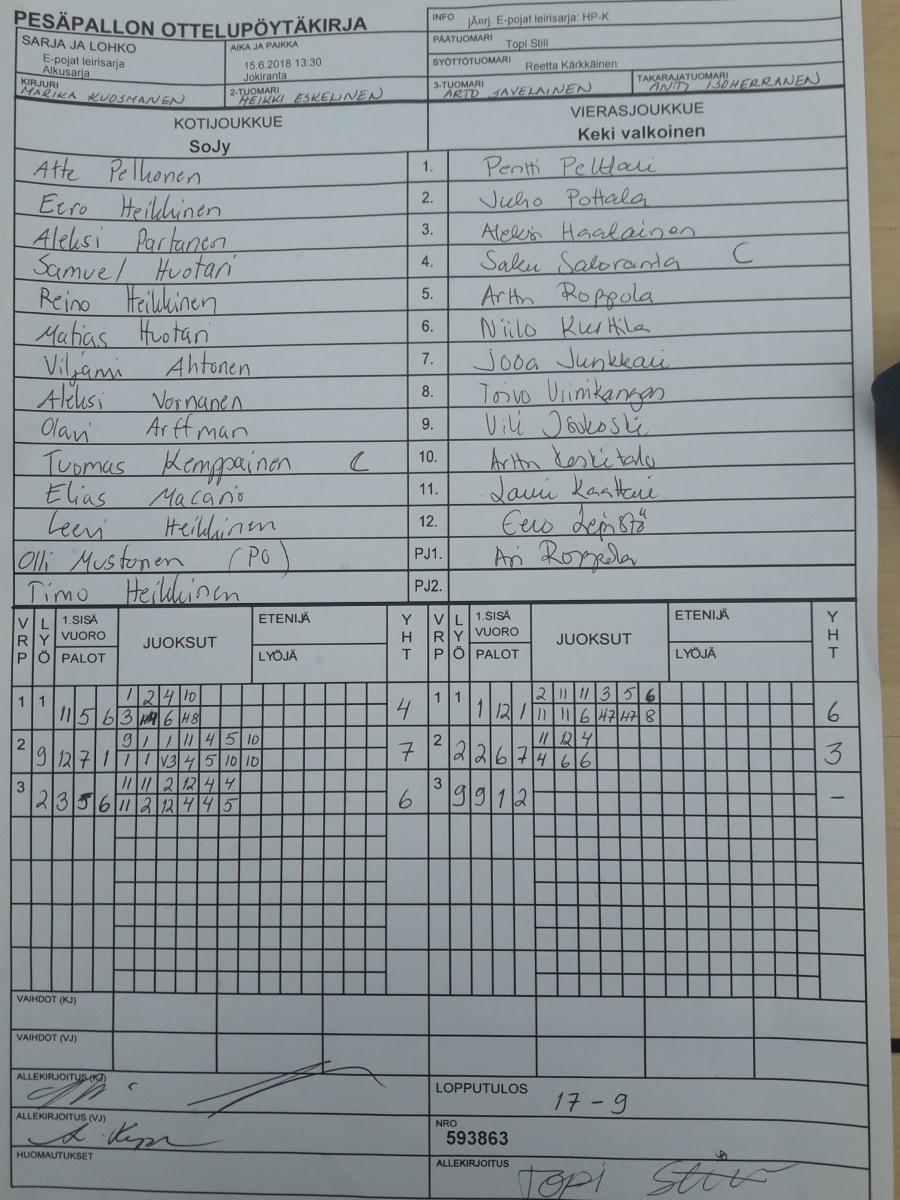 PESÄPALLON OTTELUPÖYTÄKIRJA
INFO jÃ¤rj. E-pojat leirisarja: HP-K
SARJA JA LOHKO
E-pojat leirisarja
Alkusarja
AIKA JA PAIKKA
15.6.2018 13:30
Jokiranta
PÄÄTUOMARI Topi Still
SYÖTTÖTUOMARI Reetta Kärkkäinen
KIRJURI
MARIKA KUOSMANEN
2-TUOMARI
HEIKKI ESKELINEN
3-TUOMARI
ARTO SAVELAINEN
TAKARAJATUOMARI
ANTTI ISOHERRANEN
KOTIJOUKKUE
SoJy
VIERASJOUKKUE
Keki valkoinen
Atte Pelkonen 1. Pentti Pelttari
Eero Heikkinen 2. Juho Pottala
Aleksi Partanen 3. Aleksi Haalainen
Samuel Huotari 4. Saku Saloranta C
Reino Heikkinen 5. Arttu Roppola
Matias Huotari 6. Niilo Kurttila
Viljami Ahtonen 7. Jooa Junkkari
Aleksi Vornanen 8. Toivo Viirnikangas
Olavi Arffman 9. Vili
Tuomas Kemppainen C 10. Arttu Keskitalo
Elias Macario 11. Lauri Kaattari
Leevi Heikkinen 12. Eero Lepistö
Olli Mustonen (PO) PJ1. Ari Roppola
Timo Heikkinen PJ2.
VRP LYÖ 1.SISÄ VUORO PALOT JUOKSUT ETENIJÄ LYÖJÄ YHT VRP LYÖ 1.SISÄ VUORO PALOT JUOKSUT ETENIJÄ LYÖJÄ YHT
1 2 4 10 2 11 11 3 5 6
1 1 11 5 6 4 1 1 1 12 1 6
3 6 H8 11 11 6 H7 H7 8
9 1 1 11 4 5 10 11 12 4
2 9 12 7 1 7 2 2 2 6 7 3
1 1 V3 4 5 10 10 4 6 6
11 11 2 12 4 4
3 2 3 5 6 6 3 9 9 1 2 -
11 2 12 4 4 5
VAIHDOT (KJ)
VAIHDOT (VJ)
ALLEKIRJOITUS (KJ)
LOPPUTULOS
17 - 9
ALLEKIRJOITUS (VJ)
NRO
593863
HUOMAUTUKSET
ALLEKIRJOITUS Topi Still